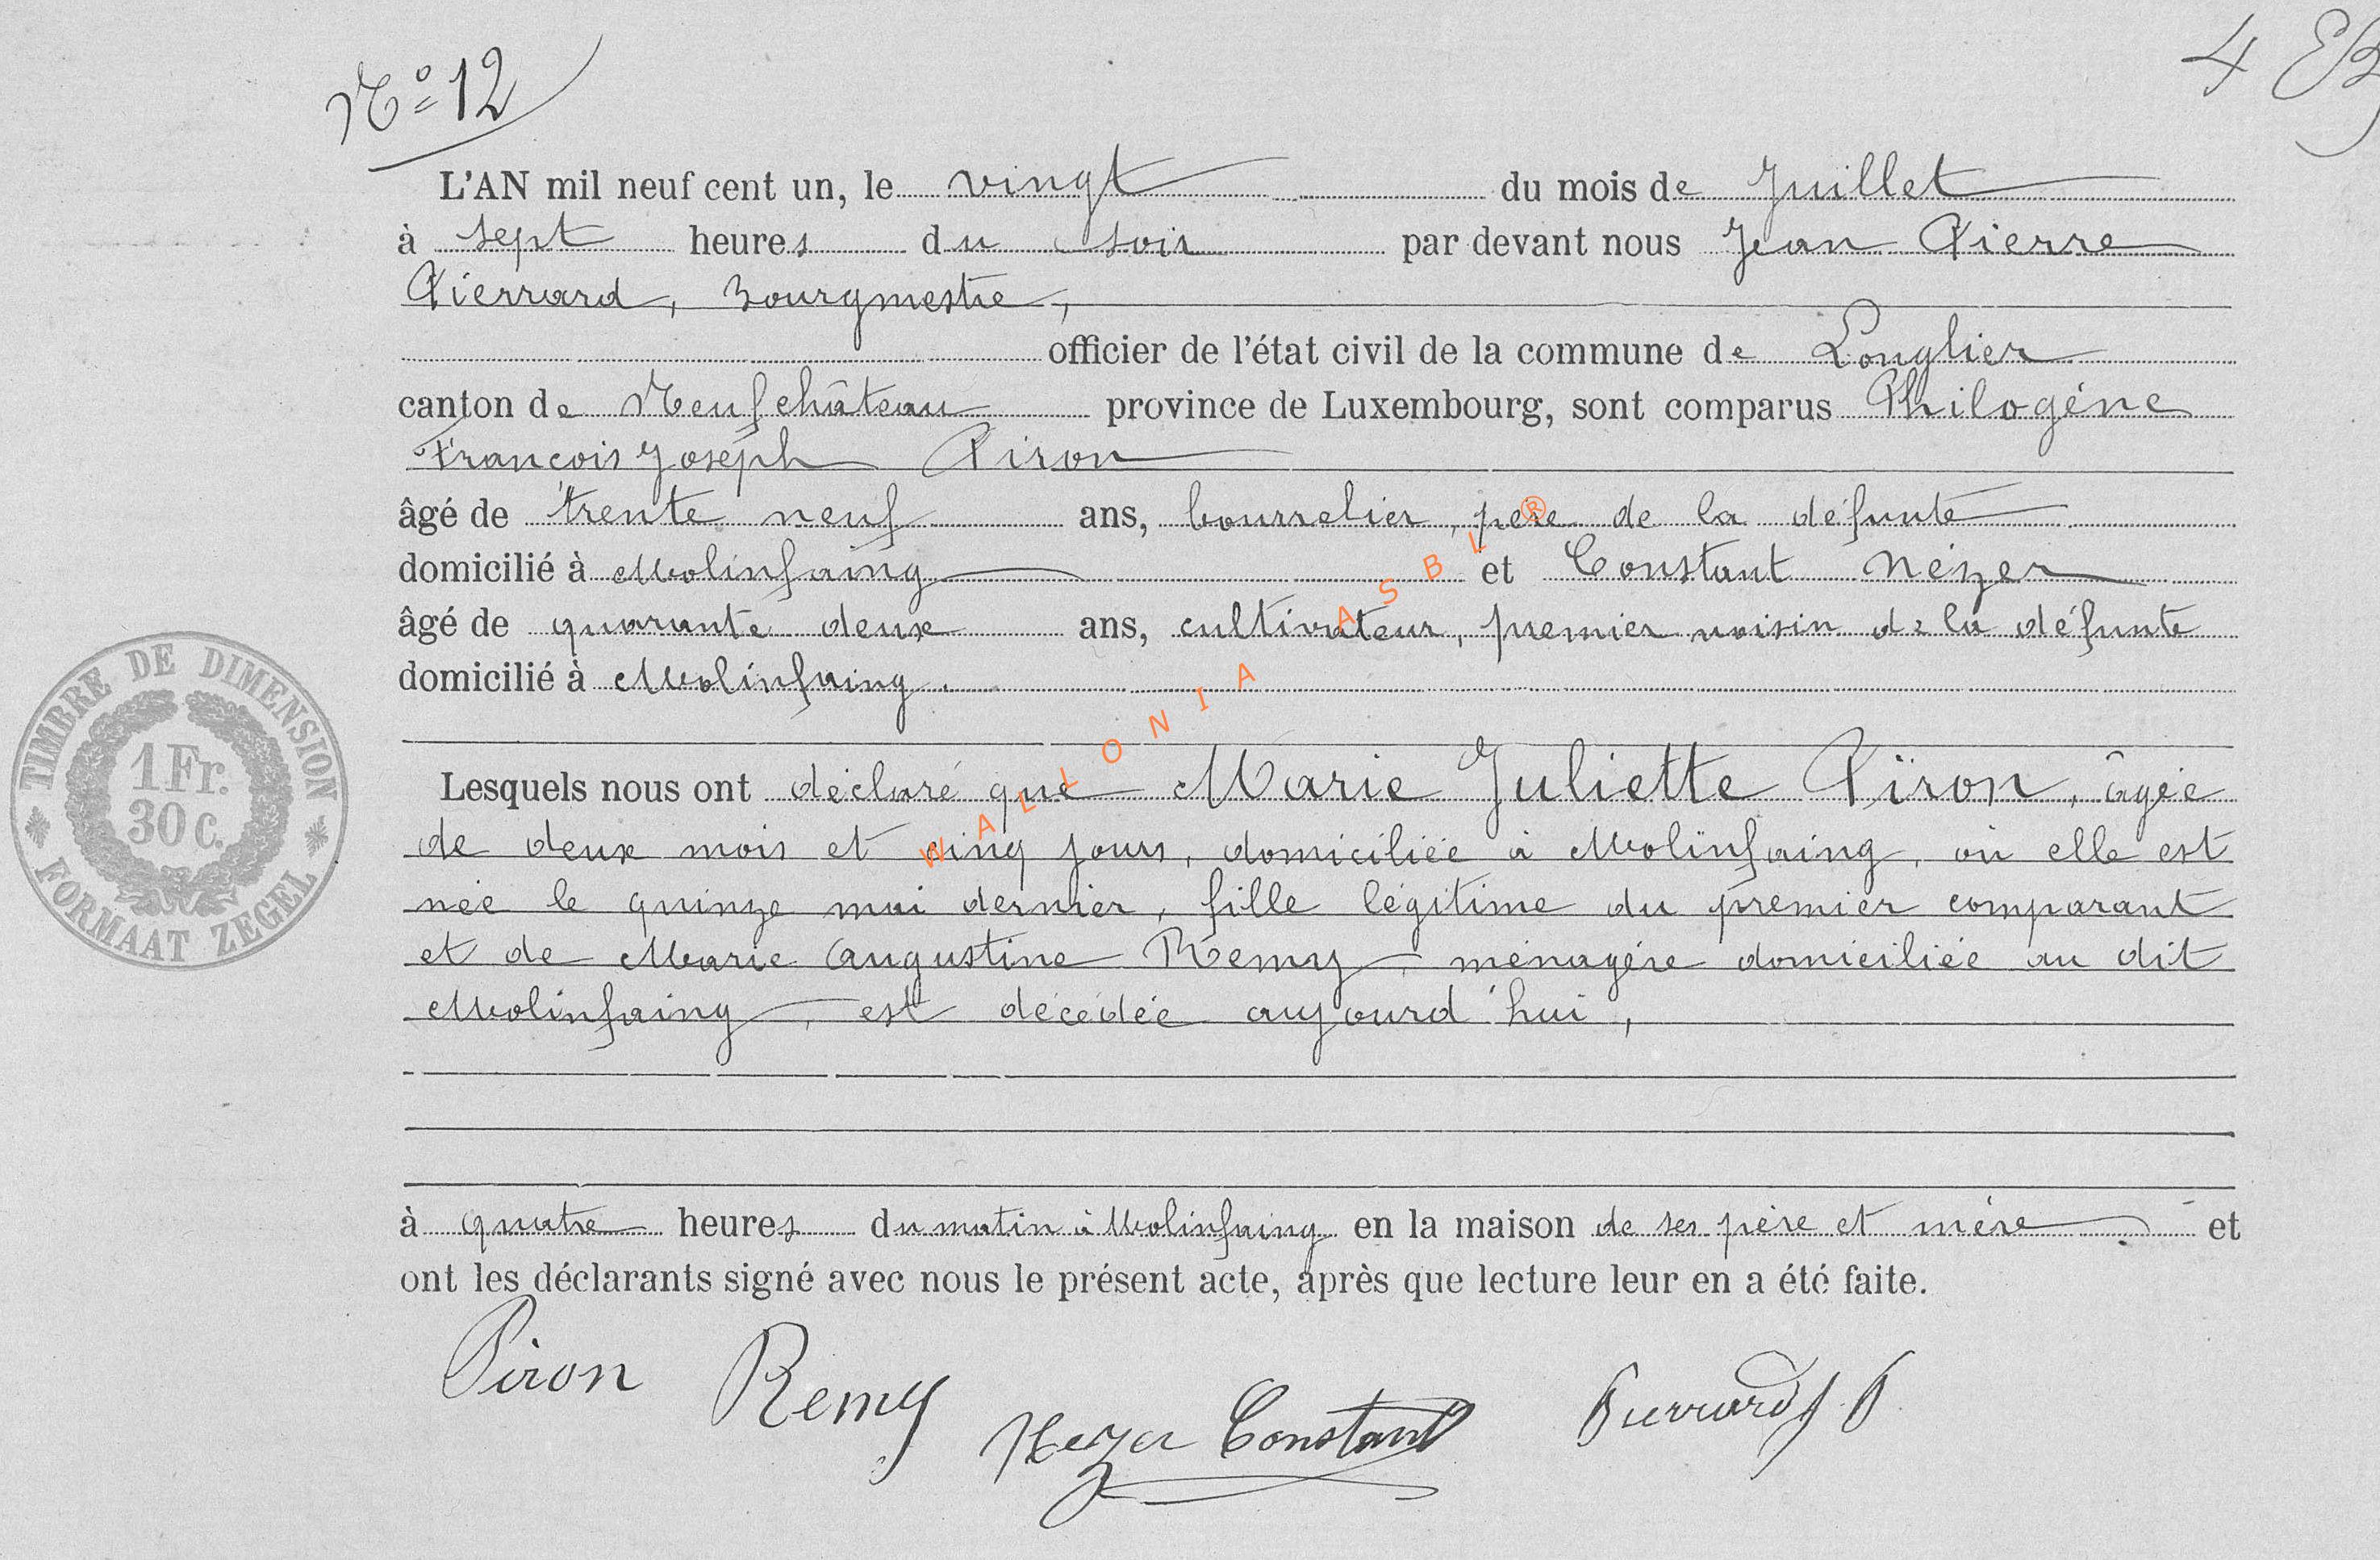 N° 12
4
L'AN mil neuf cent un, le vingt du mois de Juillet
à sept heures du soir par devant nous Jean Pierre
Pierrard, Bourgmestre,
officier de l'état civil de la commune de Longlier
canton de Neufchâteau province de Luxembourg, sont comparus Philogène
François Joseph Piron
âgé de trente neuf ans, bourrelier, père de la défunte
domicilié à Molinfaing et Constant Nézer
âgé de quarante deux ans, cultivateur, premier voisin de la défunte
domicilié à Molinfaing.
Lesquels nous ont déclaré que Marie Juliette Piron, âgée
de deux mois et cinq jours, domiciliée à Molinfaing, où elle est
née le quinze mai dernier, fille légitime du premier comparant
et de Marie Augustine Remy, ménagère domiciliée au dit
Molinfaing, est décédée aujourd'hui,
à quatre heures du matin à Molinfaing en la maison de ses père et mère et
ont les déclarants signé avec nous le présent acte, après que lecture leur en a été faite.
Piron Remy Nezer Constant Pierrard J. P.
TIMBRE DE DIMENSION
1 Fr.
30 c.
FORMAAT ZEGEL
WALLONIA ASBL ®